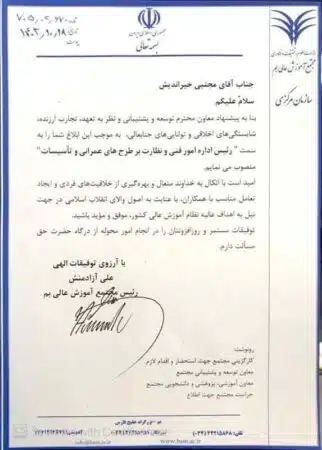 جمهوری اسلامی ایران
بسمه تعالی
۱۴۰۲،۱۰،۱۸
مجتمع آموزش عالی بم
سازمان مرکزی
جناب آقای مجتبی خیراندیش
سلام علیکم
بنا به پیشنهاد معاون محترم توسعه و پشتیبانی و نظر به تعهد، تجارب ارزنده،
شایستگی‌های اخلاقی و توانایی‌های جنابعالی، به موجب این ابلاغ شما را به
سمت "رئیس اداره امور فنی و نظارت بر طرح های عمرانی و تأسیسات"
منصوب می نمایم.
امید است با اتکال به خداوند متعال و بهره‌گیری از خلاقیت‌های فردی و ایجاد
تعامل مناسب با همکاران، با عنایت به اصول والای انقلاب اسلامی در جهت
نیل به اهداف عالیه نظام آموزش عالی کشور، موفق و مؤید باشید.
توفیقات مستمر و روزافزونتان را در انجام امور محوله از درگاه حضرت حق
مسألت دارم.
با آرزوی توفیقات الهی
علی آزادمنش
رئیس مجتمع آموزش عالی بم
رونوشت:
کارگزینی مجتمع جهت استحضار و اقدام لازم
معاون توسعه و پشتیبانی مجتمع
معاون آموزشی، پژوهشی و دانشجویی مجتمع
حراست مجتمع جهت اطلاع
بم - بزرگراه خلیج فارس
www.bam.ac.ir